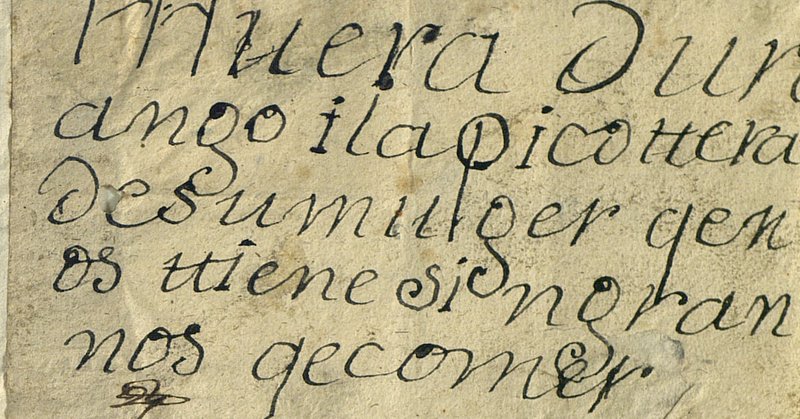 Muera Dur
ango ilapicottera
desumulger qen
os ttiene singran
nos qecomer